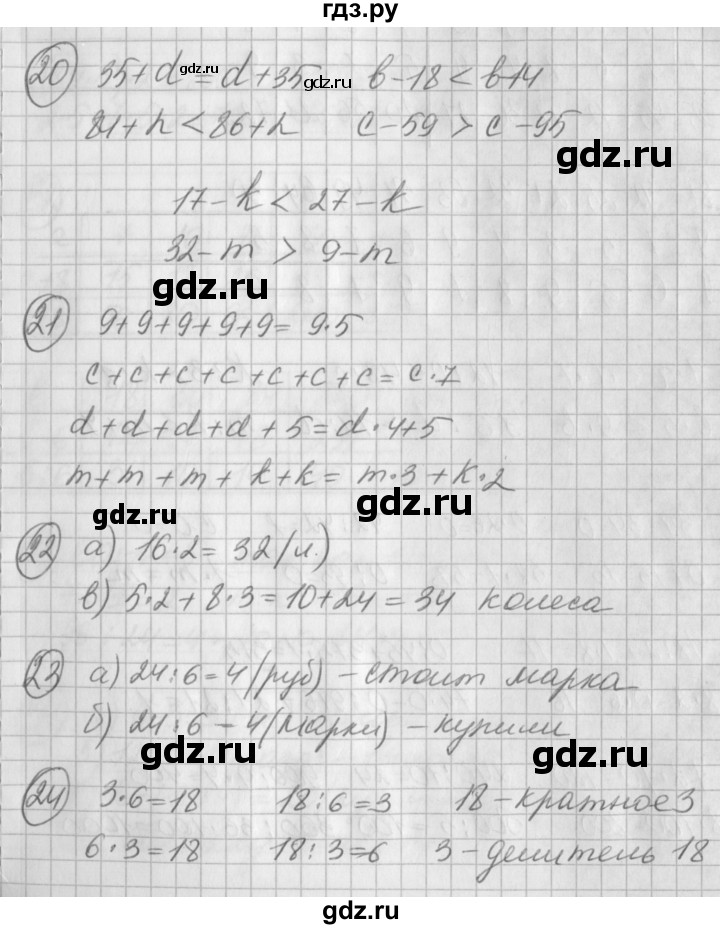 гдз.ру
20) 35+d = d+35 b-18 < b+4
gdz.ru
gdz.ru
81+h < 86+h c-59 > c-95
gdz.ru
17-k < 27-k
32-m > 9-m
gdz.ru
21) 9+9+9+9+9= 9·5
gdz.ru
c+c+c+c+c+c+c= c·7
d+d+d+d+5=d·4+5
m+m+m+k+k= m·3+k·2
gdz.ru
gdz.ru
22) а) 16·2= 32 (и.)
в) 5·2+8·3=10+24=34 колеса
23) а) 24:6=4 (руб) - стоит марка
б) 24:6-4 (марки) - купили
gdz.ru
gdz.ru
24) 3·6=18 18:6=3 18-кратное 3
6·3=18 18:3=6 3-делитель 18
gdz.ru